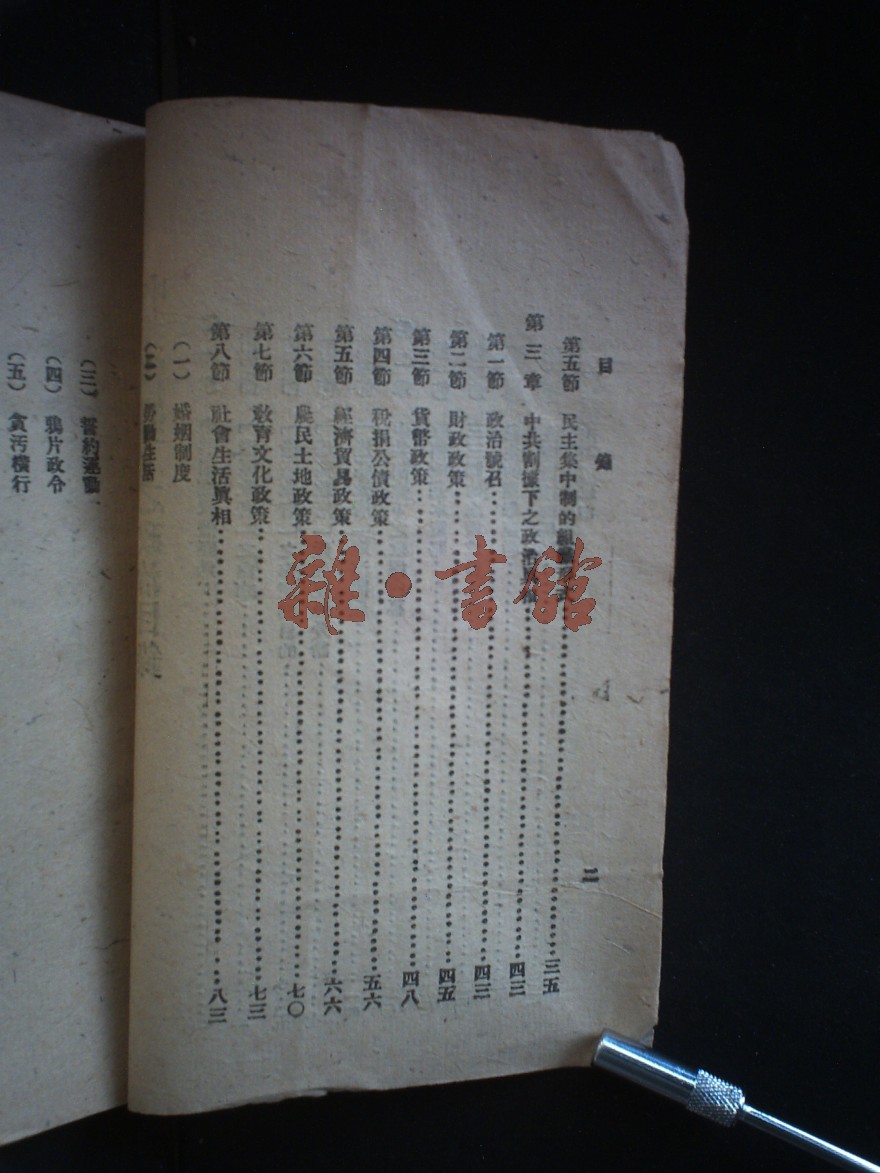 目錄
二
第五節 民主集中制的組
三五
第三章 中共割據下之政治
四三
第一節 政治號召
四三
第二節 財政政策
四五
第三節 貨幣政策
四八
第四節 稅捐公債政策
五六
第五節 經濟貿易政策
六六
第六節 農民土地政策
七〇
第七節 教育文化政策
七三
第八節 社會生活眞相
八三
(一) 婚姻制度
(二) 勞動生活
(三)
(四) 鴉片政令
(五) 貪汚橫行
雜·書館